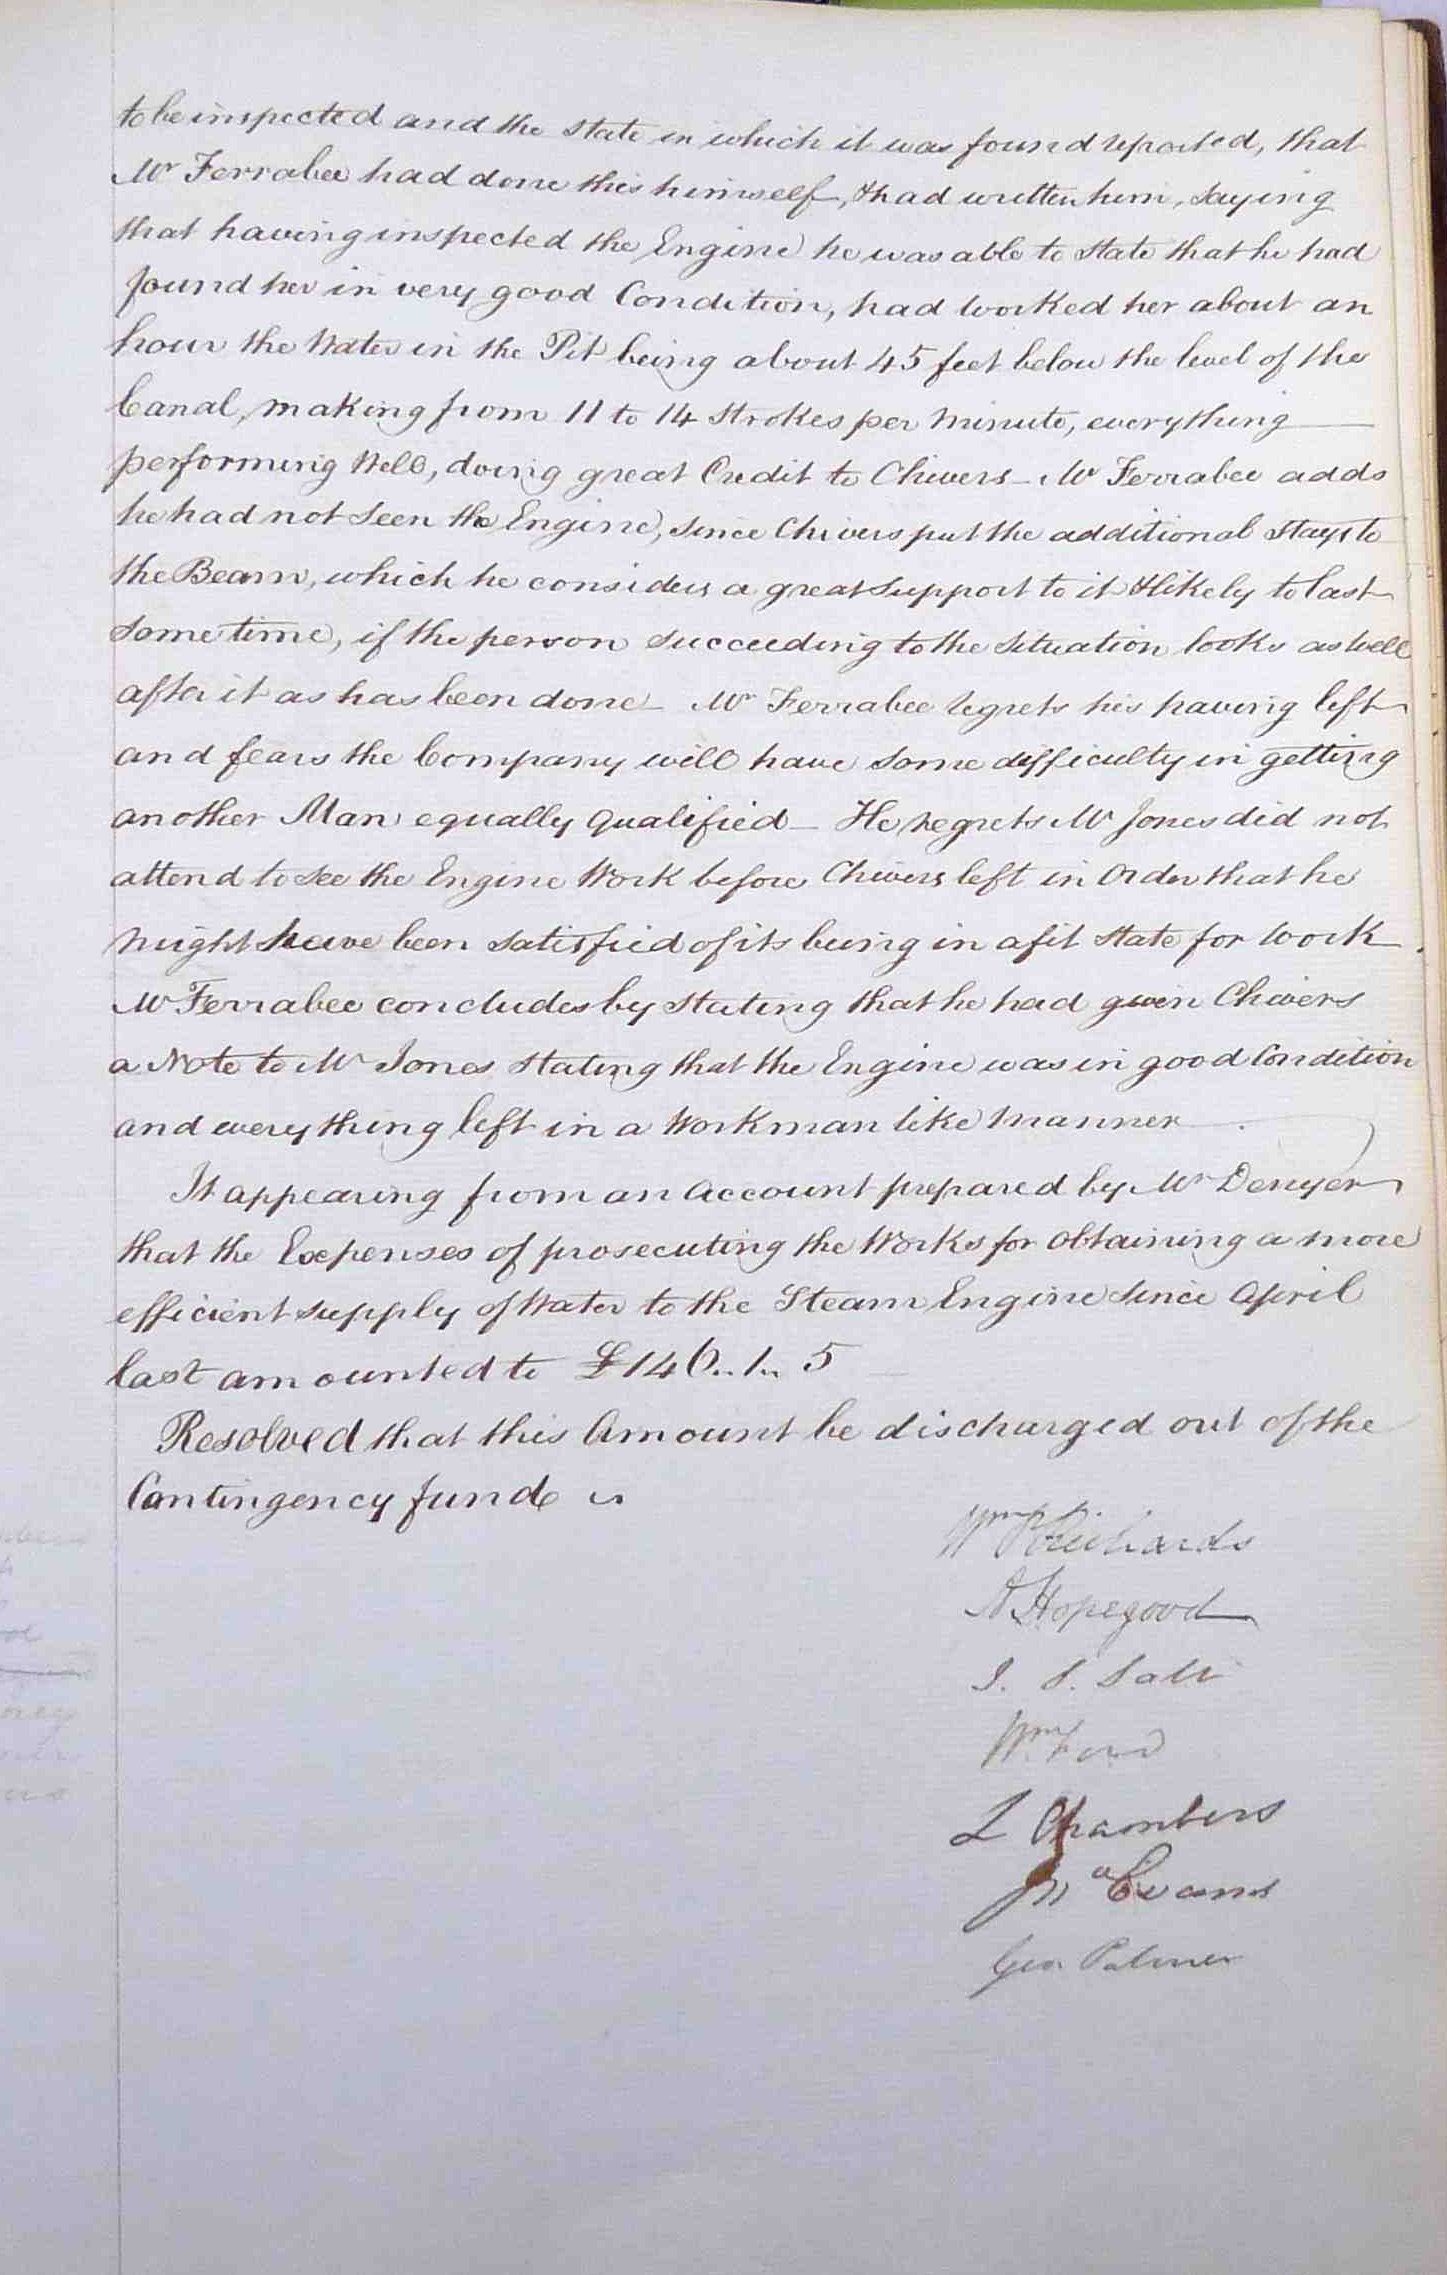 to be inspected and the state in which it was found reported, that
Mr Ferrabee had done this himself, & had written him, saying
that having inspected the Engine he was able to state that he had
found her in very good Condition, had worked her about an
hour the Water in the Pit being about 45 feet below the level of the
Canal, making from 11 to 14 Strokes per Minute, everything
performing Well, doing great Credit to Chivers - Mr Ferrabee adds
he had not seen the Engine, since Chivers put the additional Stays to
the Beam, which he considers a great support to it & likely to last
some time, if the person succeeding to the situation looks as well
after it as has been done - Mr Ferrabee regrets his having left
and fears the Company will have some difficulty in getting
another Man equally qualified - He regrets Mr Jones did not
attend to see the Engine Work before Chivers left in Order that he
might have been satisfied of its being in a fit state for Work.
Mr Ferrabee concludes by stating that he had given Chivers
a Note to Mr Jones stating that the Engine was in good Condition
and every thing left in a Workman like Manner
It appearing from an Account prepared by Mr Denyer
that the Expenses of prosecuting the Works for obtaining a more
efficient supply of Water to the Steam Engine since April
last amounted to £146.. 1.. 5
Resolved that this Amount be discharged out of the
Contingency fund
Wm P Richards
A Hopegood
J. S. Salt
Wm Ford
L Chambers
Jno Evans
Geo. Palmer